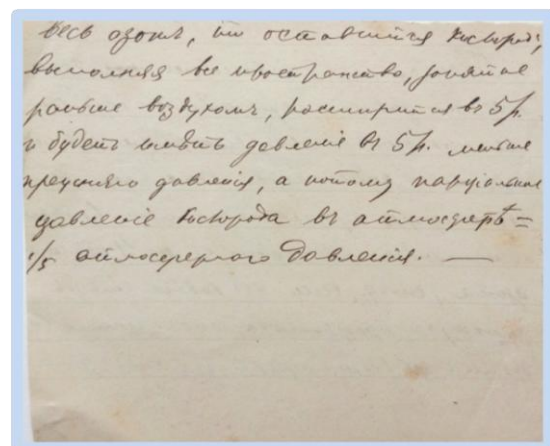 весь озотъ, то оставшійся кислородъ,
выполняя все пространство, занятое
раньше воздухомъ, расширится въ 5 р.
и будетъ имѣть давленіе въ 5 р. меньше
прежняго давленія, а потому парціальное
давленіе кислорода въ атмосферѣ =
1/5 атмосфернаго давленія. —